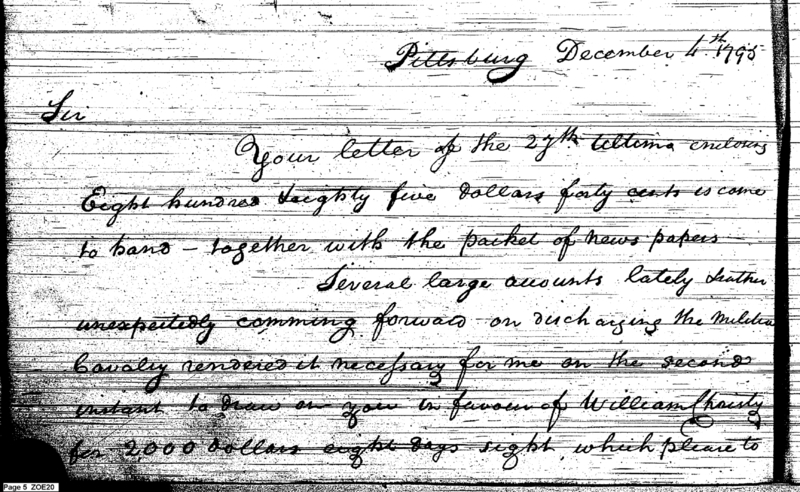 Pittsburg December 4th 1795
Sir
Your letter of the 27th Ultimo enclosing
Eight hundred & eighty five dollars forty cents is come
to hand – together with the packet of news papers
Several large acounts lately & rather
unexpectedly comming forward on discharging the Militia
Cavalry rendered it necessary for me on the second
instant to draw on you in favour of William Christy
for 2000 dollars eight days sight, which please to
Page 5 ZOE20